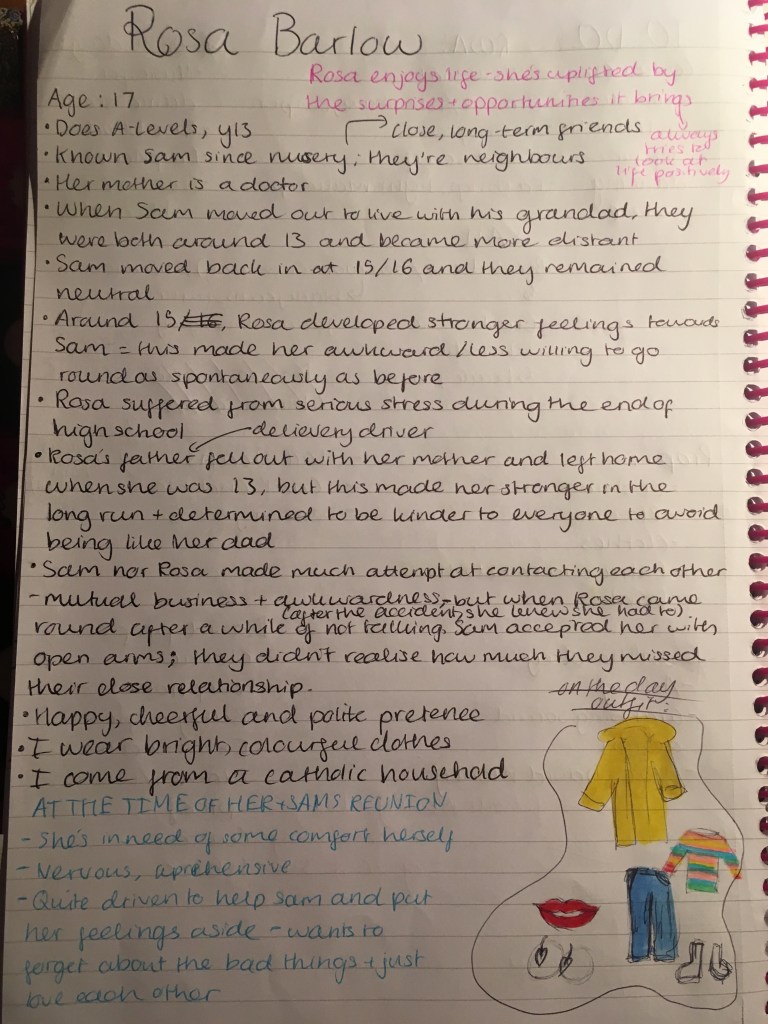 Rosa Barlow
Rosa enjoys life - she's uplifted by
the surprises + opportunities it brings
always
tries to
look at
life positively
Age : 17
• Does A-Levels, y13
close, long-term friends
• Known Sam since nursery; they're neighbours
• Her mother is a doctor
• When Sam moved out to live with his grandad, they
were both around 13 and became more distant
• Sam moved back in at 15/16 and they remained
neutral
• Around 15/16, Rosa developed stronger feelings towards
Sam = this made her awkward / less willing to go
round as spontaneously as before
• Rosa suffered from serious stress during the end of
high school
delievery driver
• Rosa's father fell out with her mother and left home
when she was 13, but this made her stronger in the
long run + determined to be kinder to everyone to avoid
being like her dad
• Sam nor Rosa made much attempt at contacting each other
- mutual business + awkwardness - but when Rosa came
(after the accident, she knew she had to)
round after a while of not talking, Sam accepted her with
open arms; they didn't realise how much they missed
their close relationship.
• Happy, cheerful and polite pretence
• I wear bright, colourful clothes
• I come from a catholic househad
AT THE TIME OF HER + SAMS REUNION
- She's in need of some comfort herself
- Nervous, aprehensive
- Quite driven to help Sam and put
her feelings aside - wants to
forget about the bad things + just
love each other
on the day
outfit: